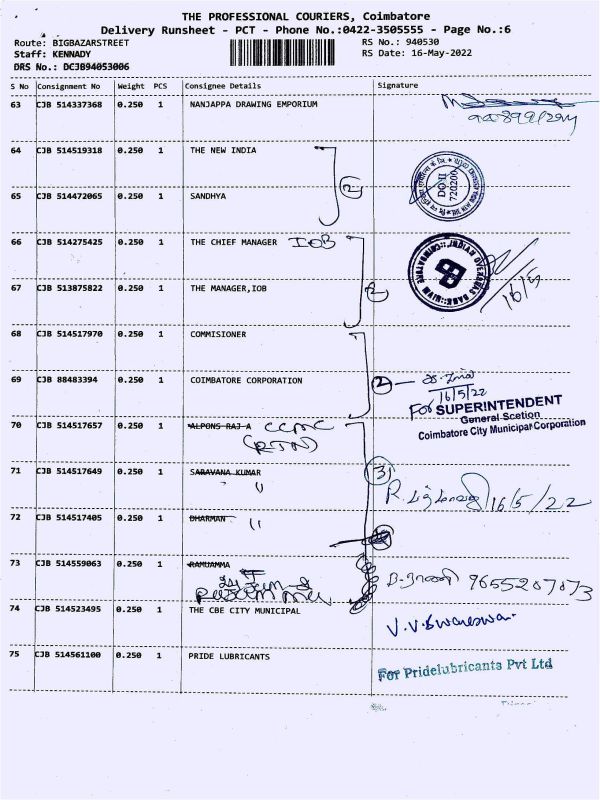 THE PROFESSIONAL COURIERS, Coimbatore
Delivery Runsheet - PCT - Phone No.:0422-3505555 - Page No.:6
Route: BIGBAZARSTREET RS No.: 940530
Staff: KENNADY RS Date: 16-May-2022
DRS No.: DCJB94053006
S No Consignment No Weight PCS Consignee Details Signature
63 CJB 514337368 0.250 1 NANJAPPA DRAWING EMPORIUM
64 CJB 514519318 0.250 1 THE NEW INDIA
65 CJB 514472065 0.250 1 SANDHYA
2
DO:III
720200
66 CJB 514275425 0.250 1 THE CHIEF MANAGER IOB
67 CJB 513875822 0.250 1 THE MANAGER,IOB
2
16/5
68 CJB 514517970 0.250 1 COMMISIONER
69 CJB 88483394 0.250 1 COIMBATORE CORPORATION
2
16/5/22
For SUPERINTENDENT
General Scetion
Coimbatore City Municipar Corporation
70 CJB 514517657 0.250 1 ALPONS RAJ A CCMC
71 CJB 514517649 0.250 1 SARAVANA KUMAR "
3
R. 16/5/22
72 CJB 514517405 0.250 1 DHARMAN "
73 CJB 514559063 0.250 1 RAMUAMMA
B-ராணி 9655207073
74 CJB 514523495 0.250 1 THE CBE CITY MUNICIPAL
75 CJB 514561100 0.250 1 PRIDE LUBRICANTS
For Pridelubricants Pvt Ltd